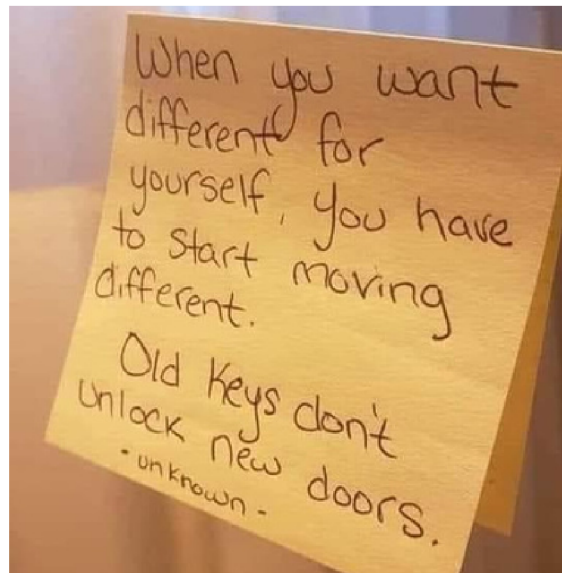 When you want
different for
yourself, you have
to start moving
different.
Old keys don't
unlock new doors.
- unknown -